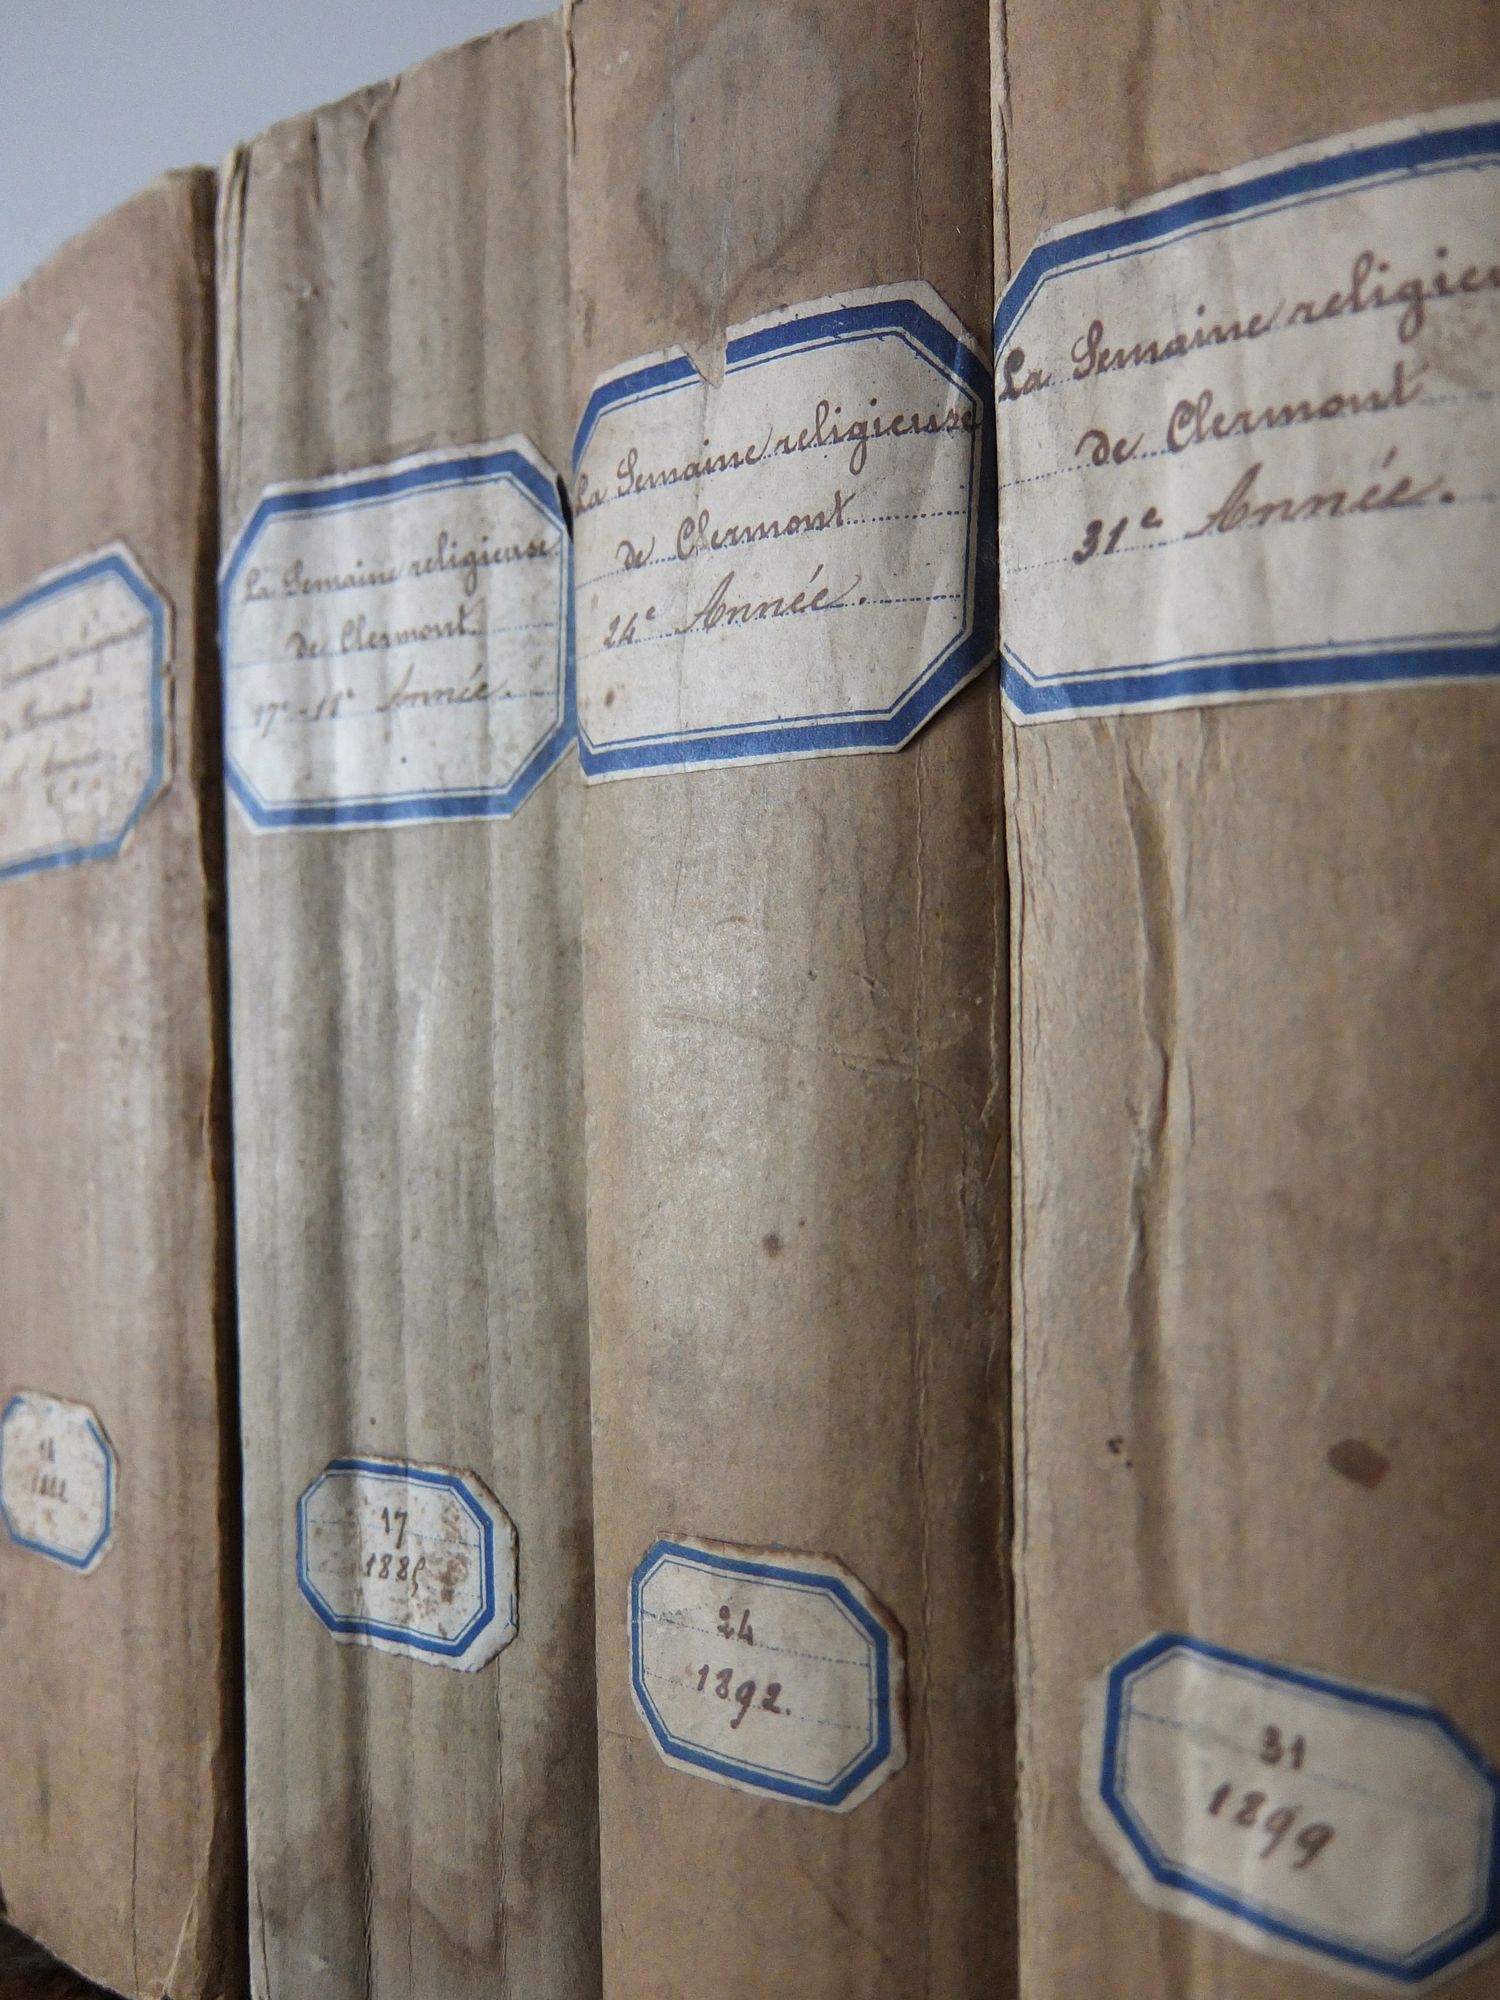 La Semaine religieuse
de Clermont
17e-18e Année.
17
1885
La Semaine religieuse
de Clermont
24e Année.
24
1892.
La Semaine religieu
de Clermont
31e Année.
31
1899